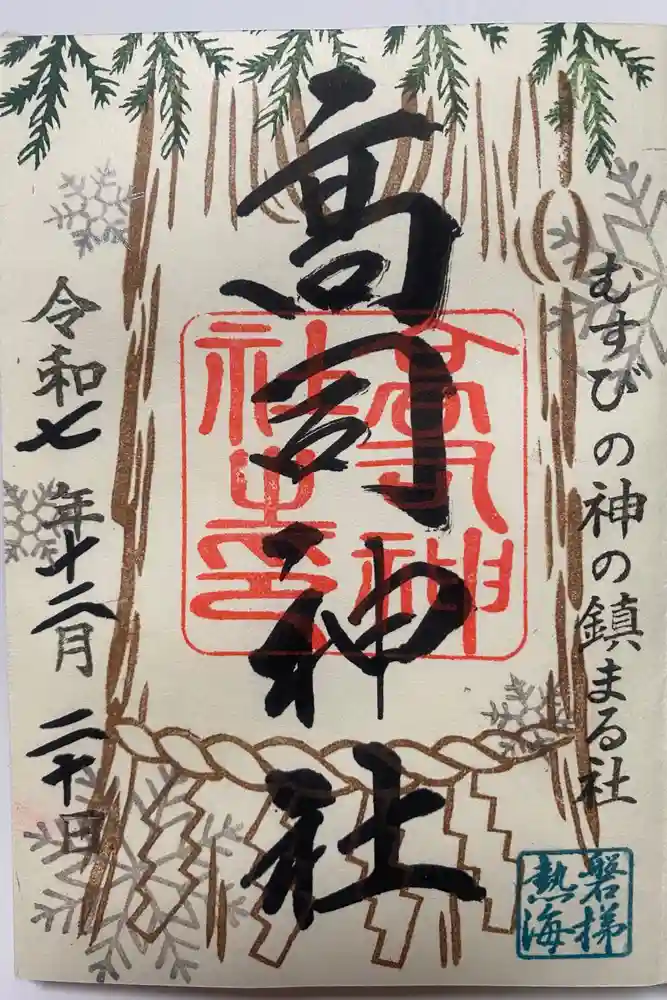 むすびの神の鎮まる社
高司神社
高司神社之印
令和七年十二月二十日
磐梯
熱海